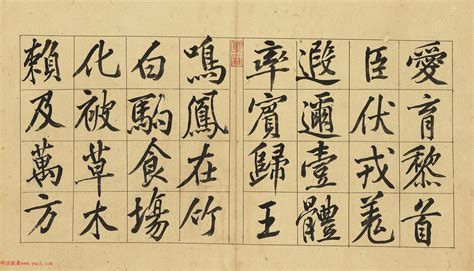 愛育黎首
臣伏戎羌
遐邇壹體
率賓歸王
鳴鳳在竹
白駒食場
化被草木
賴及萬方